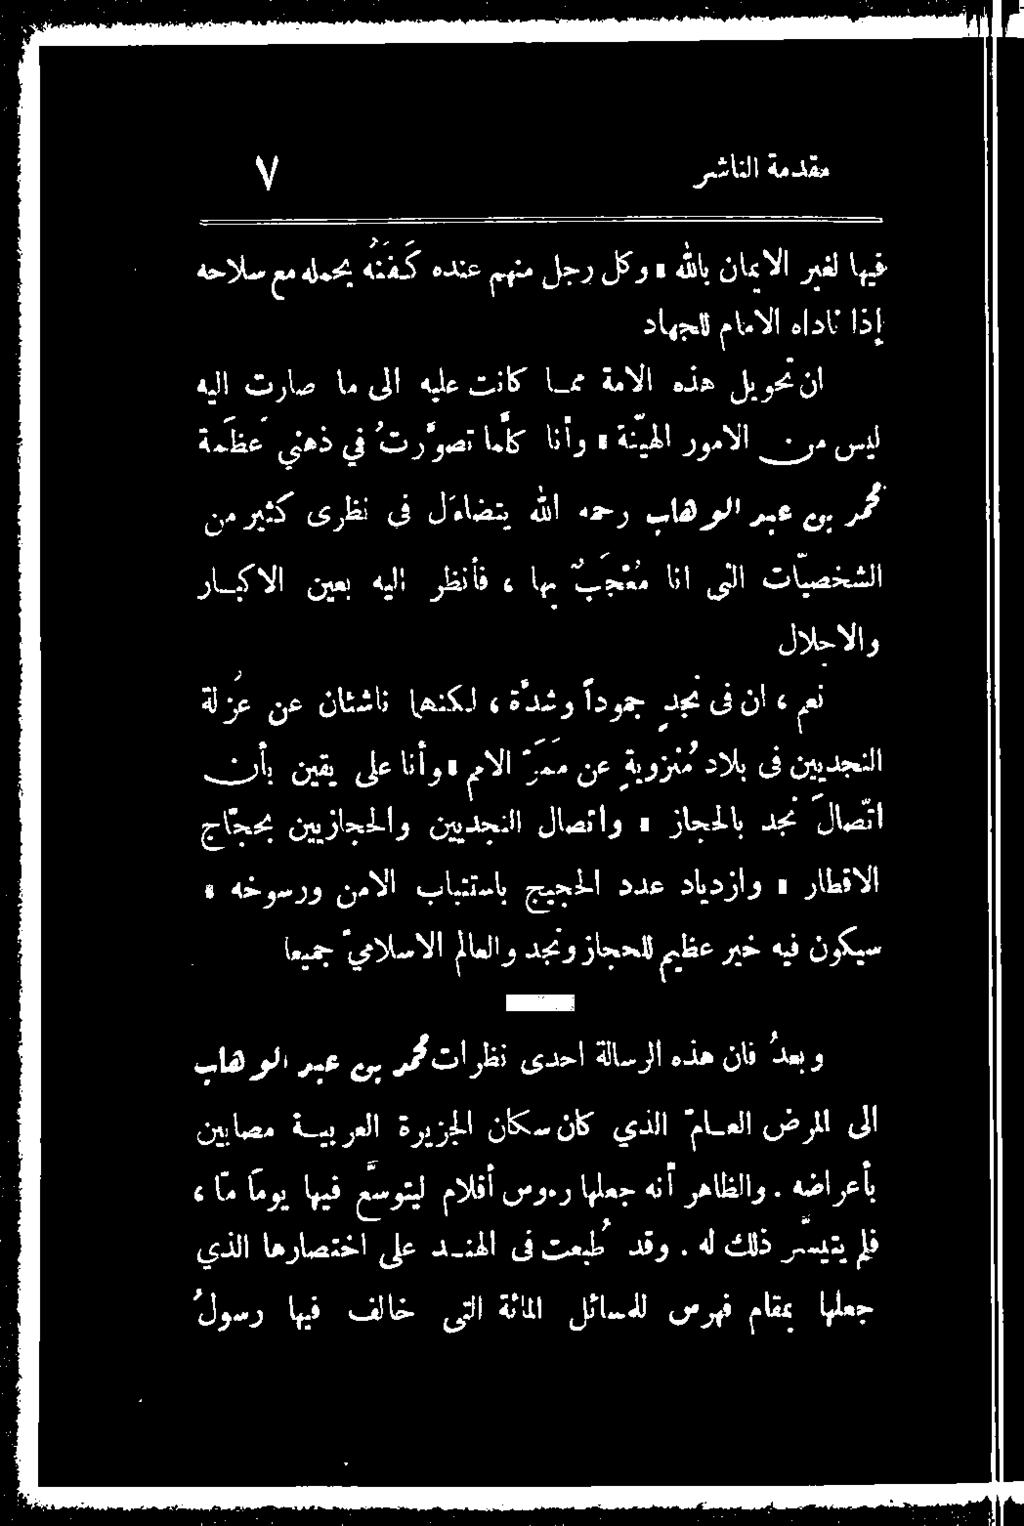 مقدمة الناشر ٧
فيها لغير الايمان بالله ، وكل رجل منهم عنده كَفَنُه يحمله مع سلاحه
إذا ناداه الامام للجهاد
ان تحويل هذه الامة ممـا كانت عليه الى ما صارت اليه
ليس من الامور الهيّنة ، وأنا كلَّما تصوَّرتُ في ذهني عَظَمة
محمد بن عبد الوهاب رحمه الله يتضاءل في نظرى كثير من
الشخصيّات التى انا مُعْجَبٌ بها ، فأنظر اليه بعين الاكبـار
والاجلال
نعم ، ان فى نجدٍ جموداً وشدَّة ، لكنهما ناشئان عن عُزلة
النجديين فى بلاد مُنزويةٍ عن مَمَرّ الامم ، وأنا على يقين بأن
اتّصالَ نجد بالحجاز ، واتصال النجديين والحجازيين بحجّاج
الاقطار ، وازدياد عدد الحجيج باستتباب الامن ورسوخه ،
سيكون فيه خير عظيم للحجاز ونجد والعالم الاسلاميّ جميعا
وبعدُ فان هذه الرسالة احدى نظرات محمد بن عبد الوهاب
الى المرض العـامّ الذي كان سكان الجزيرة العربيـة مصابين
بأعراضه . والظاهر أنه جعلها رءوس أقلام ليتوسَّع فيها يوماً مّا ،
فلم يتيسَّر ذلك له . وقد طُبعت فى الهنـد على اختصارها الذي
جعلها بمقام فهرس للمسائل المائة التى خالف فيها رسولُ